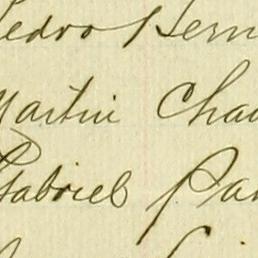 edro Bern
Martin Cha
Gabriel Pa